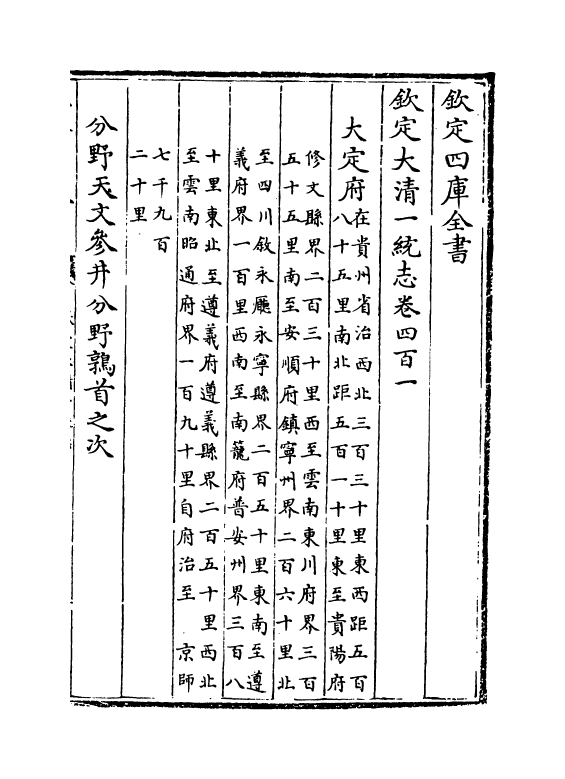 欽定四庫全書
欽定大清一統志卷四百一
大定府在貴州省治西北三百三十里東西距五百
八十五里南北距五百一十里東至貴陽府
修文縣界二百三十里西至雲南東川府界三百
五十五里南至安順府鎮寧州界二百六十里北
至四川敘永廳永寧縣界二百五十里東南至遵
義府界一百里西南至南籠府普安州界三百八
十里東北至遵義府遵義縣界二百五十里西北
至雲南昭通府界一百九十里自府治至 京師
七千九百
二十里
分野天文參井分野鶉首之次